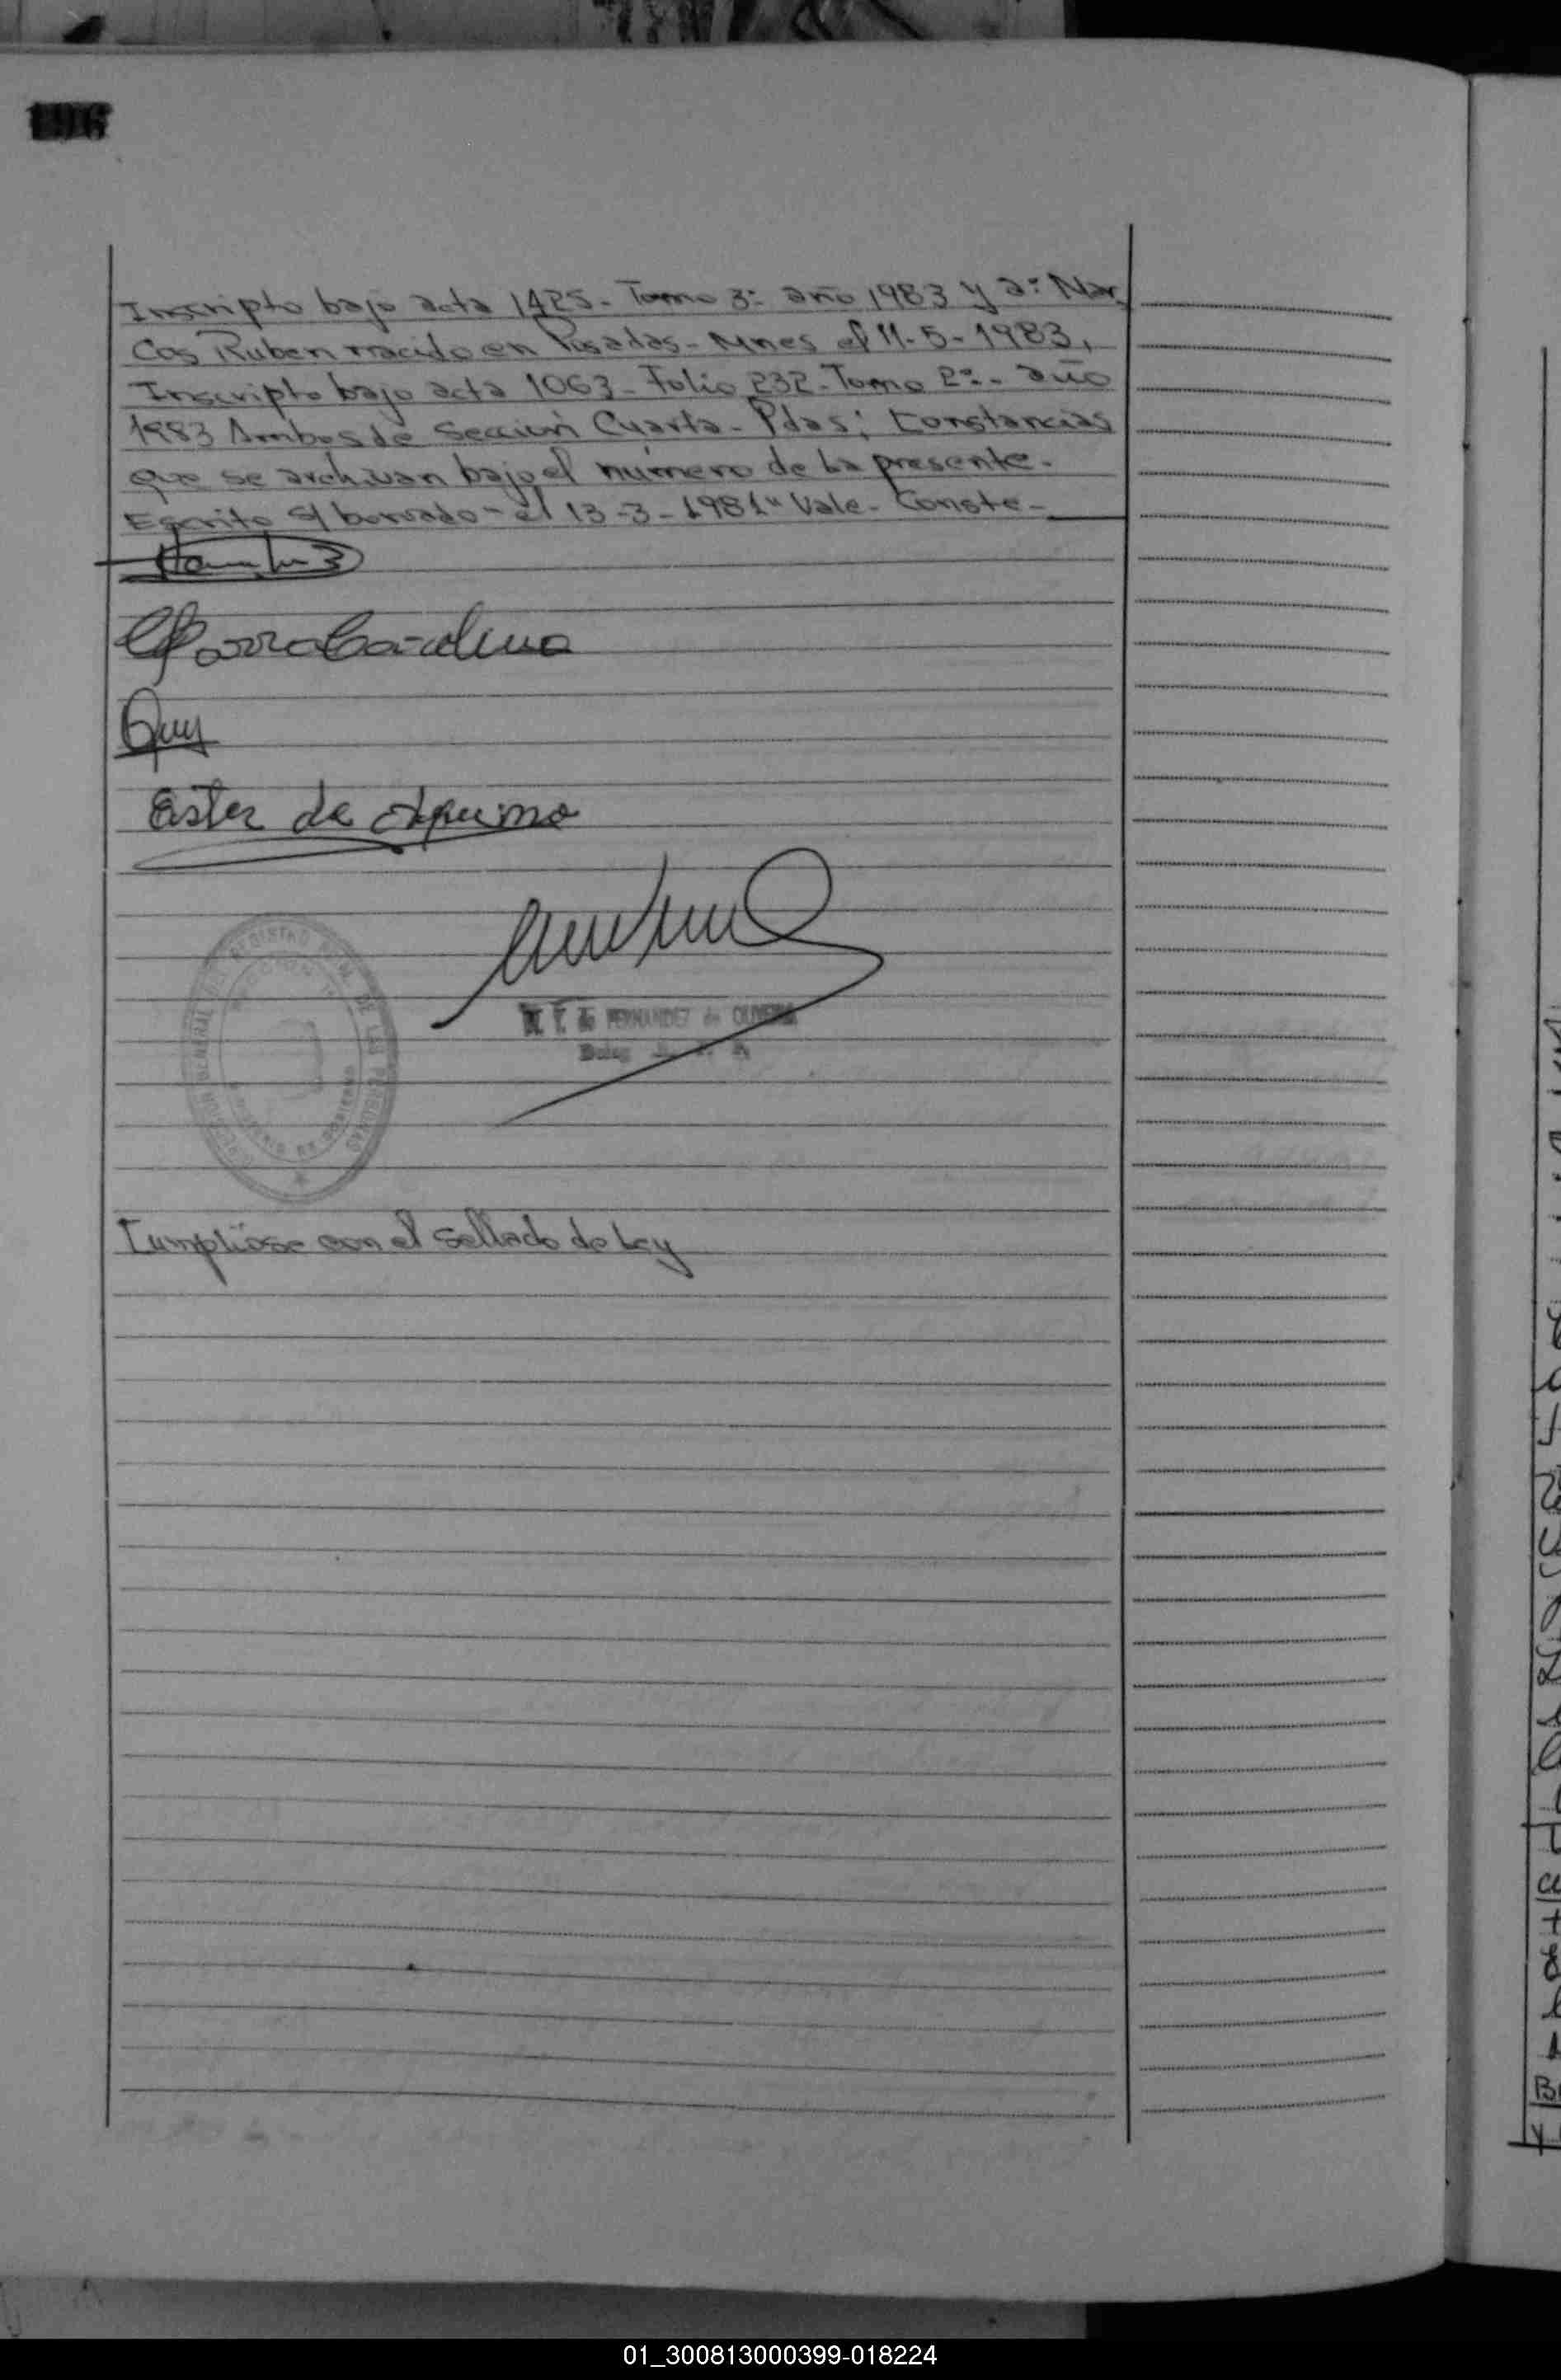 Inscripto bajo acta 1425- Tomo 3º año 1983 y 2º Mar-
cos Ruben nacido en Posadas- Mnes el 11-5-1983,
Inscripto bajo acta 1063- Folio 232- Tomo 2º- año
1983 Ambos de Sección Cuarta- Pdas; Constancias
que se archivan bajo el número de la presente-
Escrito s/ borrado- el 13-3-1981" Vale- Conste-
Ester de
DIRECCION GENERAL DEL REGISTRO PROV. DE LAS PERSONAS
MINISTERIO DE GOBIERNO
FERNANDEZ de OLIVEIRA
Cumplióse con el sellado de Ley
01_300813000399-018224